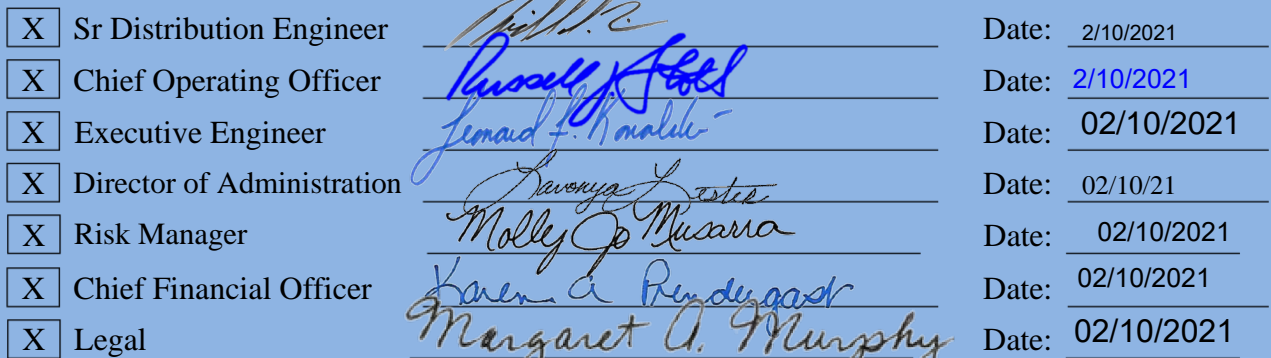 X Sr Distribution Engineer Date: 2/10/2021
X Chief Operating Officer Russell J Stoll Date: 2/10/2021
X Executive Engineer Leonard F. Kowalski Date: 02/10/2021
X Director of Administration Lavonya Lester Date: 02/10/21
X Risk Manager Molly Jo Musarra Date: 02/10/2021
X Chief Financial Officer Karen A Prendergast Date: 02/10/2021
X Legal Margaret A. Murphy Date: 02/10/2021